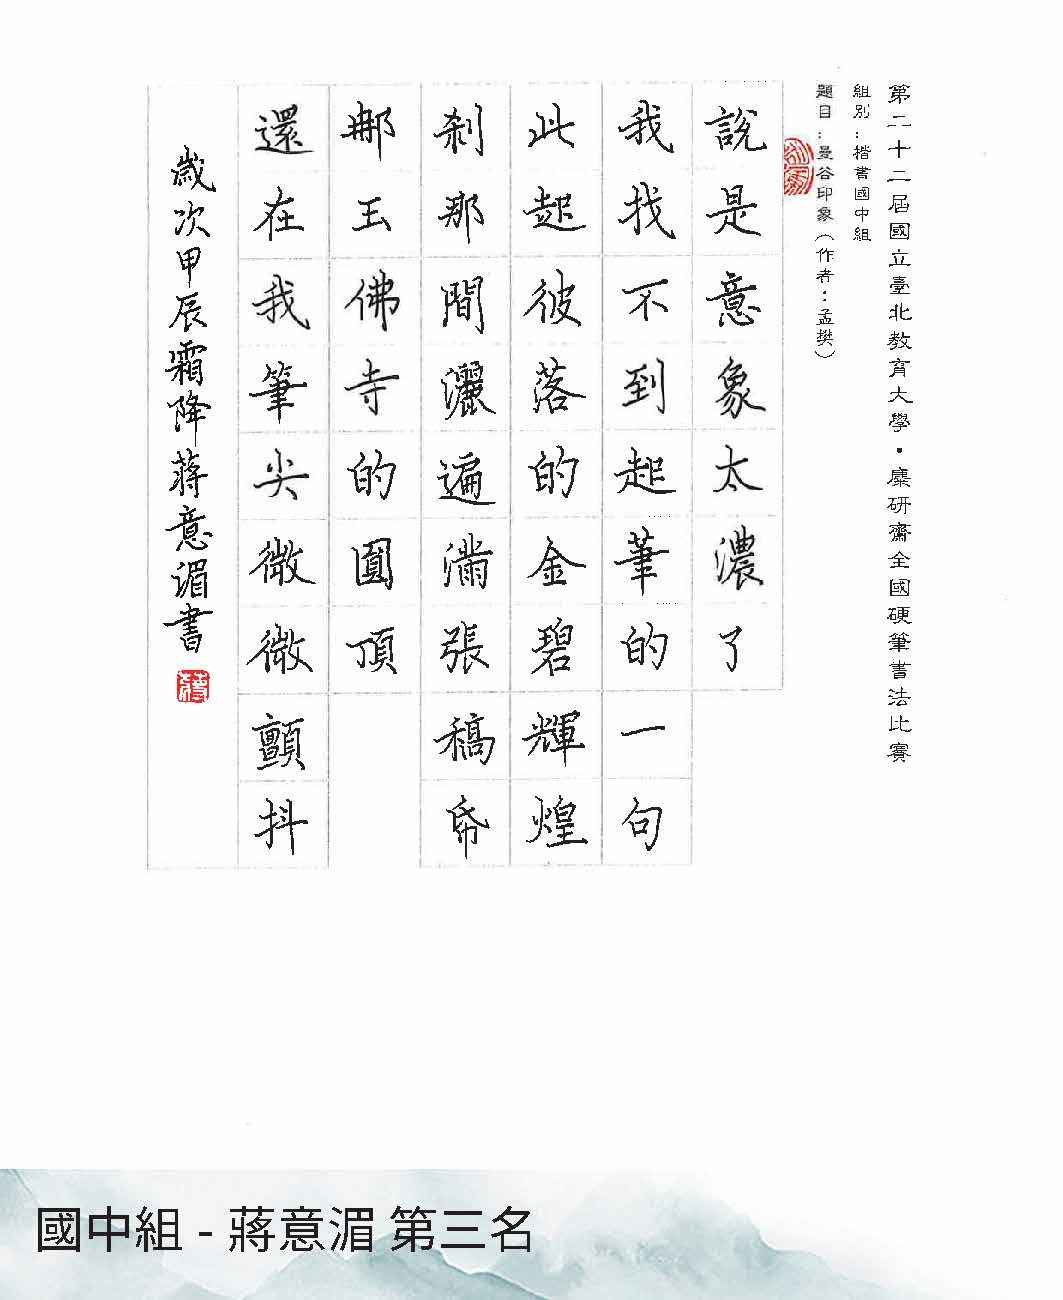 第二十二屆國立臺北教育大學・麋研齋全國硬筆書法比賽
組別：楷書國中組
題目：曼谷印象（作者：孟樊）
說是意象太濃了
我找不到起筆的一句
此起彼落的金碧輝煌
剎那間灑遍滿張稿帋
那玉佛寺的圓頂
還在我筆尖微微顫抖
歲次甲辰霜降蔣意湄書
國中組 - 蔣意湄 第三名